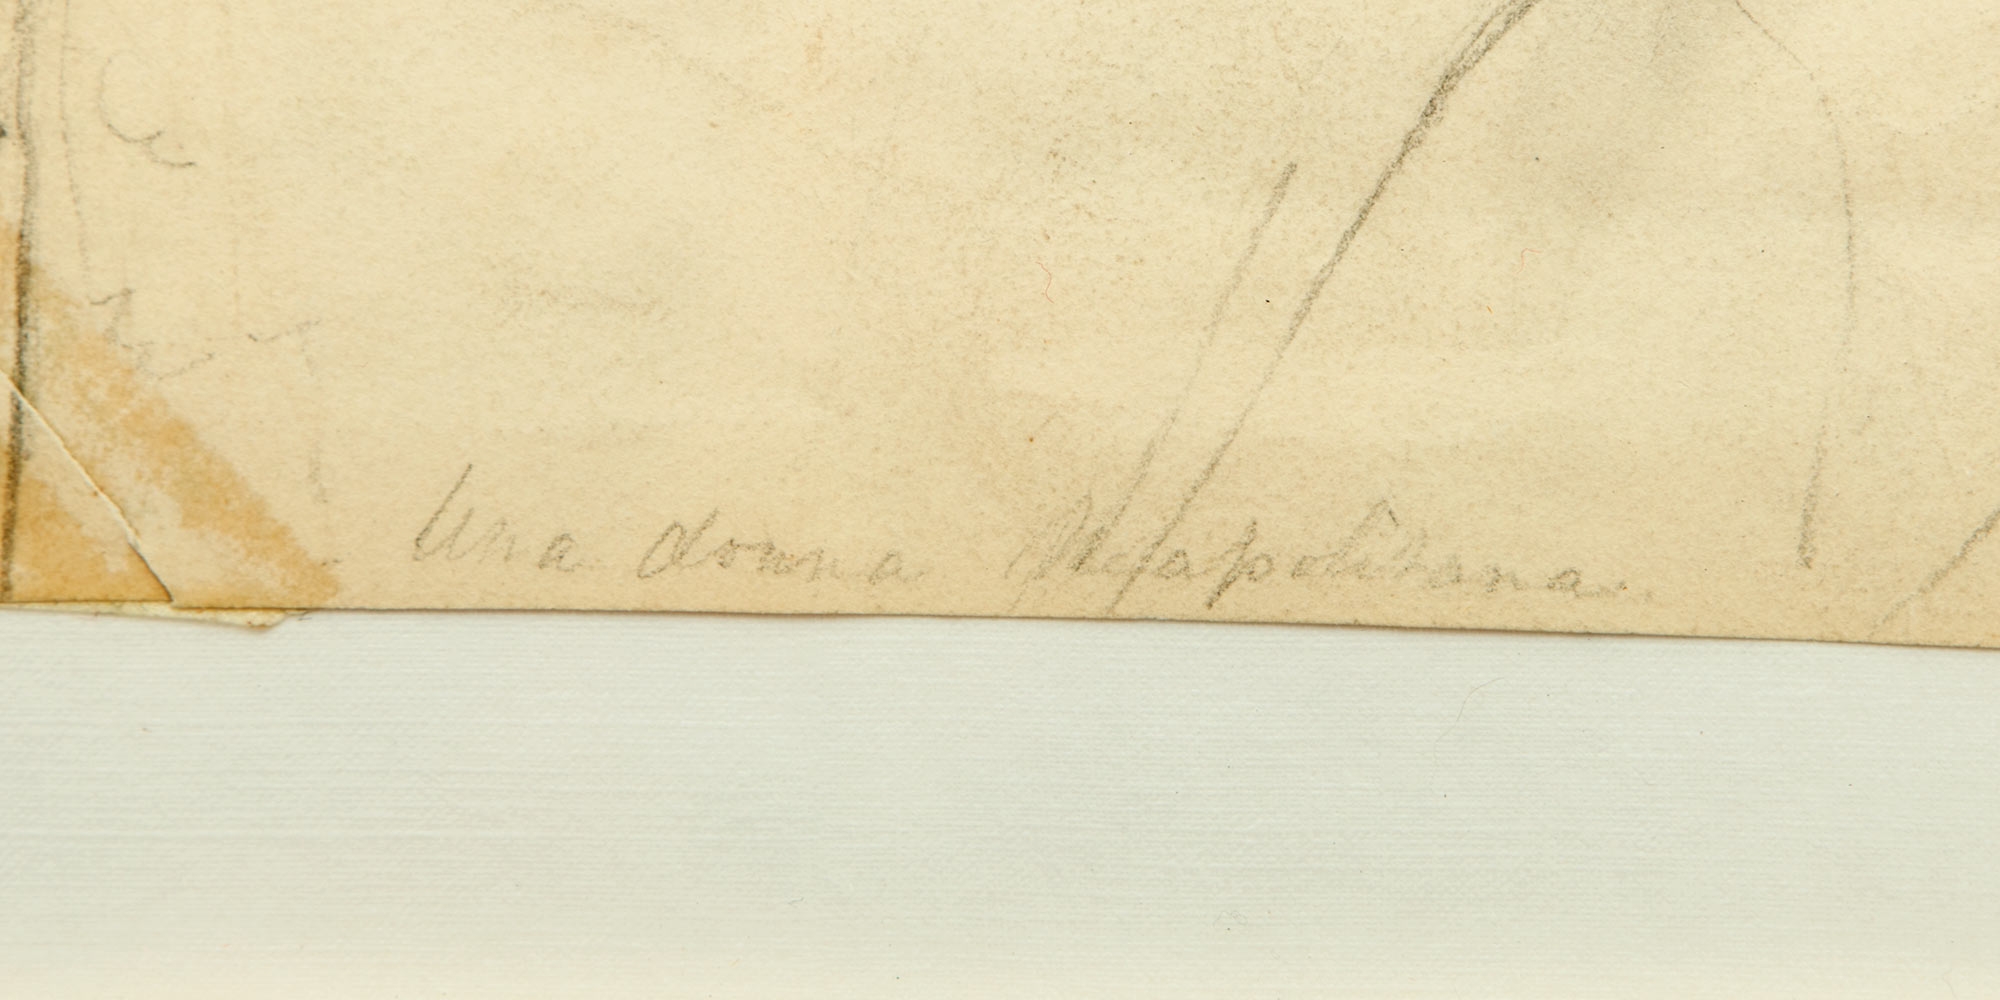 Una donna Napolitana